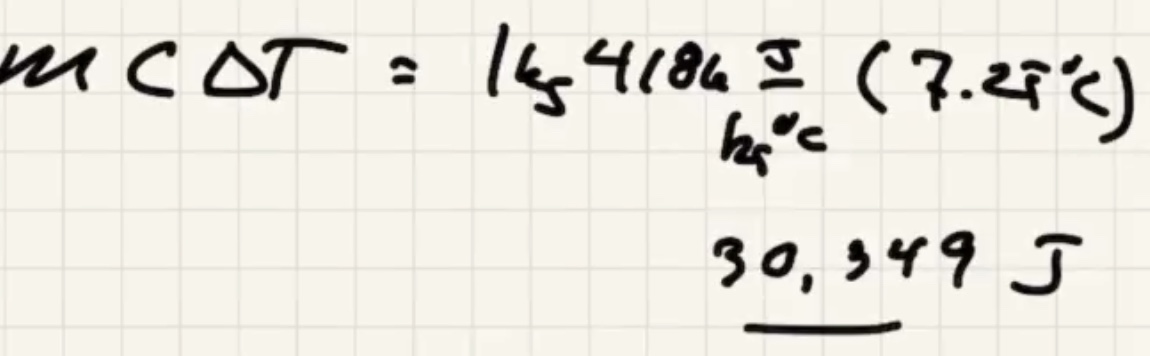 mCΔT = 1kg 4186 J/kg°C (7.25°C)
30,349 J